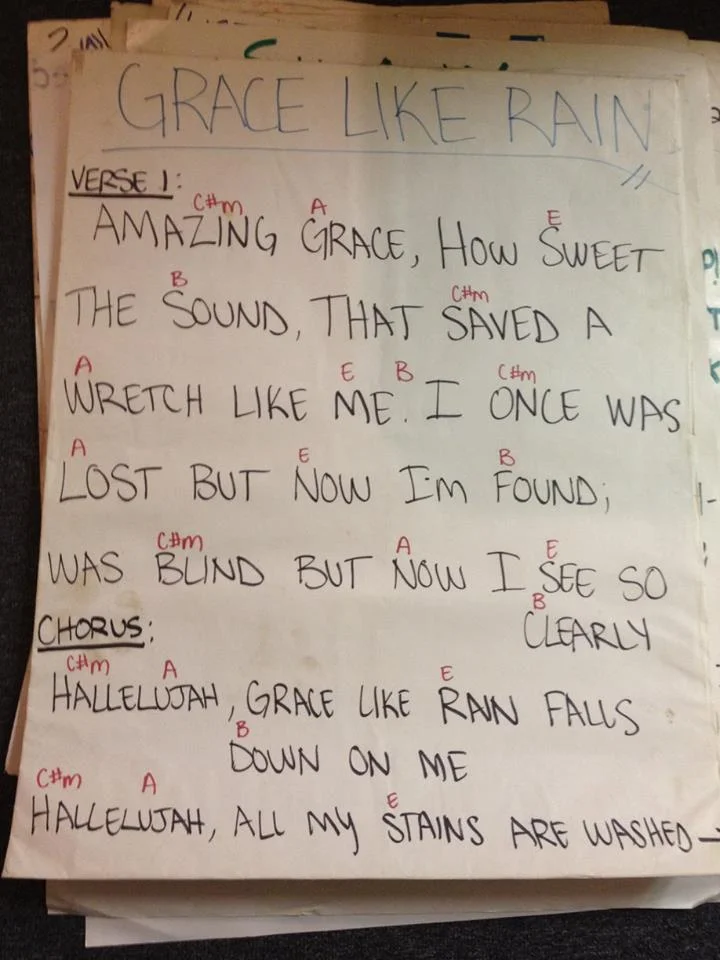 GRACE LIKE RAIN
VERSE 1:
C#m A E
AMAZING GRACE, HOW SWEET
B C#m
THE SOUND, THAT SAVED A
A E B C#m
WRETCH LIKE ME. I ONCE WAS
A E B
LOST BUT NOW I'm FOUND;
C#m A E
WAS BLIND BUT NOW I SEE SO
B
CLEARLY
CHORUS:
C#m A E
HALLELUJAH, GRACE LIKE RAIN FALLS
B
DOWN ON ME
C#m A E
HALLELUJAH, ALL MY STAINS ARE WASHED→